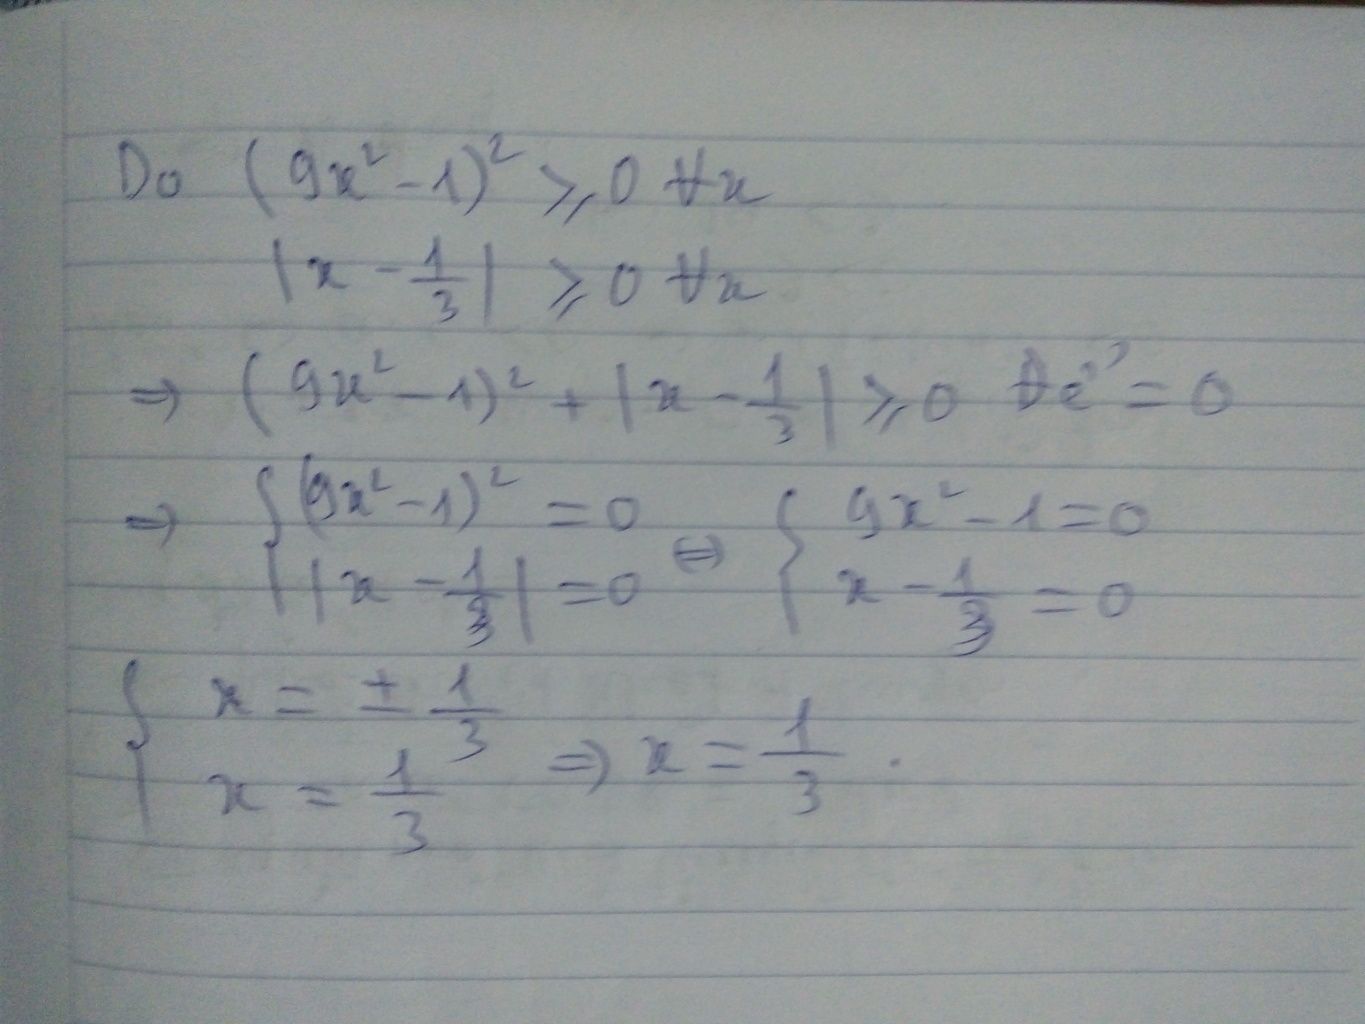 Do (9x² - 1)² ⩾ 0 ∀x
|x - 1/3| ⩾ 0 ∀x
⇒ (9x² - 1)² + |x - 1/3| ⩾ 0 Để = 0
⇒ { (9x² - 1)² = 0 ⇔ { 9x² - 1 = 0
|x - 1/3| = 0 x - 1/3 = 0
{ x = ± 1/3
x = 1/3 ⇒ x = 1/3 .